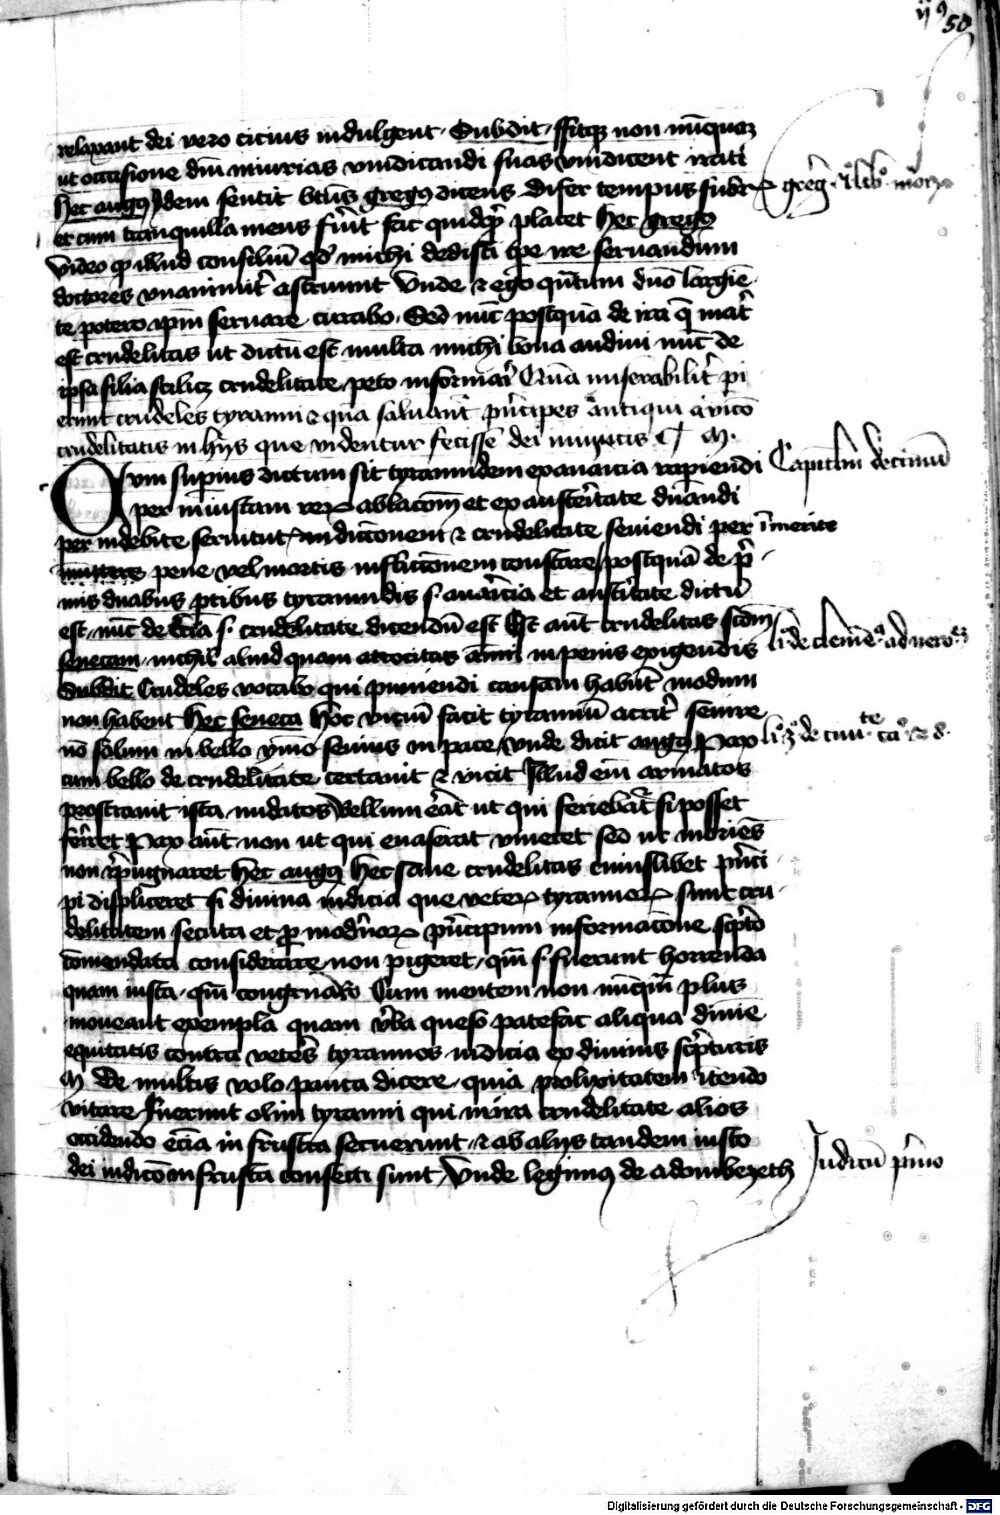 ij 9 50
relaxant dei vero cicius indulgent. Subdit. ffitqz non nu̅quaz
ut occasione dn̅i iniurias vindicandi suas vindicent irati
hec augꝰ Idem sentit btu̅s gregoꝰ dicens. Differ tempus furꝛ
gregꝰ. li̊bꝰ. morꝝ
et cum tranquilla mens fu̅it fac quidqꝫ placet hec gregoꝰ
video ꝙ illud consiliu̅ qd̛ michi dedisti tp̅e ire seruandum
doctores vnanimit̛ astruunt vnde ⁊ ego qu̅tum dn̅o largie̅
te potero ip̅m seruare curabo. Sed nu̅c postqua̅ de ira q̅ mat̛
est crudelitas ut dictu̅ est multa michi bona audiui nu̅c de
ipsa filia scilicꝫ crudelitate peto informari Qua̅ miserabilit̛ pi
erunt crudeles tyranni ⁊ qua̅ saluant̛ pri̅cipes antiqui a vicio
crudelitatis in hijs que videntur fecisse dei iniurijs M.
Cum supius dictum sit tyrannidem ex auaricia rapiendi
Capitulu̅ decimu̅
per iniustam reꝝ ablaco̅em et ex austeritate dn̅andi
per indebite seruitut̛ indicc̅onem ⁊ crudelitate seuiendi per i̅merite
pene vel mortis inflicc̅onem constare postqua̅ de pri̅
mis duabus ptibus tyrannidis s. auaricia et austeritate dictu̅
est. nu̅c de t̛cia s. crudelitate dicendu̅ est Est aut̅ crudelitas scd̅m
senecam. nichil aliud quam atrocitas ani̅i in penis exigendis
li̊ de cleme̅ꝰ ad nero̅ꝫ
Subdit Crudeles vocabo qui puniendi causam habu̅t modum
non habent hec seneca hoc viciu̅ facit tyrannu̅ acrit̛ seuire
no̅ solum in bello ymo seuius in pace vnde dicit augꝰ Pax
li. 3̊ de ciui.te cå
cum bello de crudelitate certauit ⁊ vicit Illud em̅ armatos
prostrauit ista nudatos Bellum e̅at ut qui feriebat̛ si posset
feriret Pax aut̅ non ut qui euaserat viueret sed ut moriens
non rep̅ugnaret hec augꝰ hec sane crudelitas cuiuslibet pri̅ci
pi displiceret si diuina iudicia que veteꝝ tyrannoꝝ sunt cru
delitatem secuta et ꝓ modernoꝝ pri̅cipum informac̅one scripto
co̅mendata considerare non pigeret. qua̅ s. fuerunt horrenda
quam iusta. qua̅ congrua M. Cum mentem non nu̅qua̅ plus
moueant exempla quam v̛ba queso patefac aliqua diuine
equitatis contra veteres tyrannos iudicia ex diuinis scripturis
M De multis volo pauca dicere. quia prolixitatem i̅tendo
vitare fuerunt olim tyranni qui mira crudelitate alios
occidendo ecia̅ in frustra secuerunt. ⁊ ab alijs tandem iusto
dei iudic̅o in frusta consecti sunt. Vnde legimꝰ de adombezeth
Iudicu̅ primo
Digitalisierung gefördert durch die Deutsche Forschungsgemeinschaft - DFG